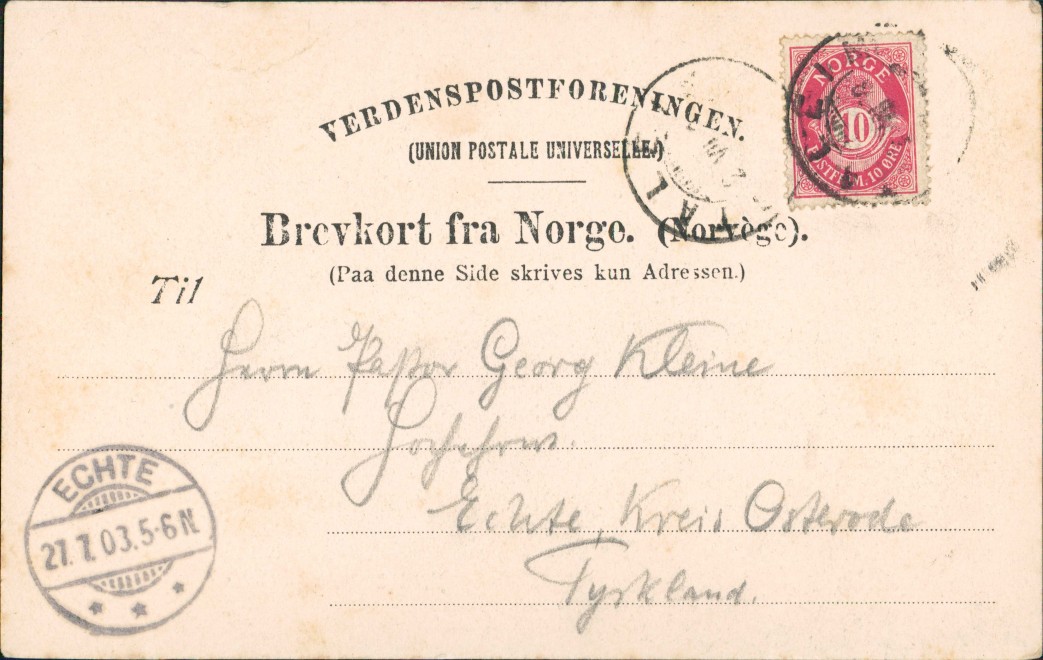 VERDENSPOSTFORENINGEN.
(UNION POSTALE UNIVERSELLE.)
Brevkort fra Norge. (Norvège).
(Paa denne Side skrives kun Adressen.)
NORGE
10
POSTFRIM. 10 ØRE
Til
Herrn Pastor Georg Kleine
Hochehrw.
Echte, Kreis Osterode
Tyskland.
ECHTE
27. 7. 03. 5-6 N.